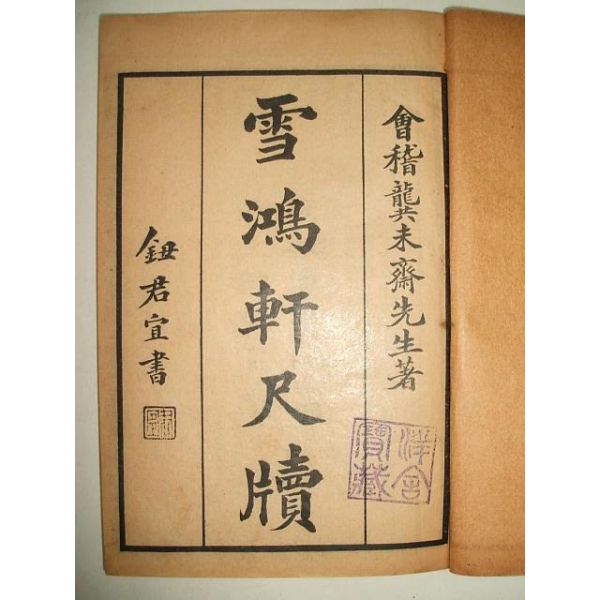 會稽龔未齋先生著
雪鴻軒尺牘
鈕君宜書